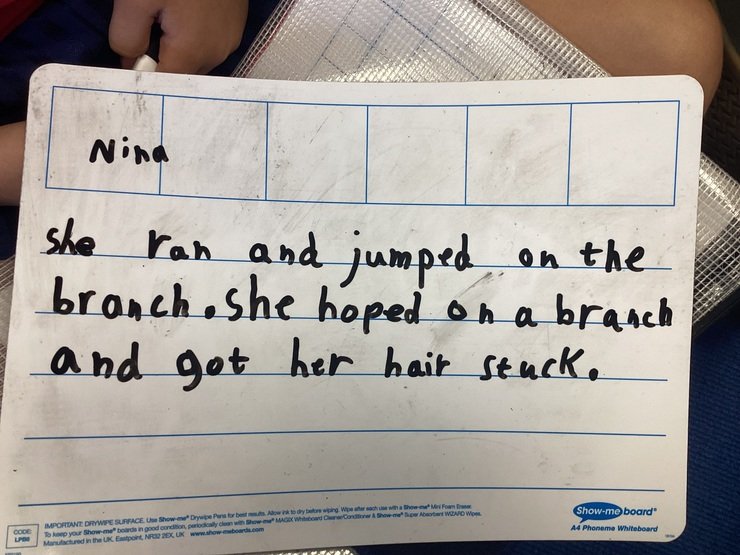 Nina
she ran and jumped on the
branch. she hoped on a branch
and got her hair stuck.
CODE
LPB6
IMPORTANT: DRYWIPE SURFACE. Use Show-me® Drywipe Pens for best results. Allow ink to dry before wiping. Wipe after each use with a Show-me® Mini Foam Eraser.
To keep your Show-me® boards in good condition, periodically clean with Show-me® MAGIX Whiteboard Cleaner/Conditioner & Show-me® Super Absorbent WIZARD Wipes.
Manufactured in the UK. Eastpoint, NR32 2EX, UK www.show-meboards.com
Show-me board®
A4 Phoneme Whiteboard